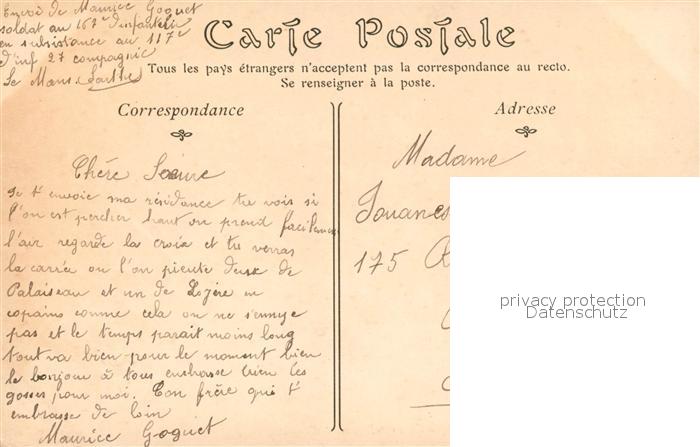 Envoi de Maurice Goguet
soldat au 167e d'infanterie
en subsistance au 117e
d'inf 27 compagnie
Le Mans. Sarthe
Carte Postale
Tous les pays étrangers n'acceptent pas la correspondance au recto.
Se renseigner à la poste.
Correspondance
Adresse
Chére Soeure
Je t'envoie ma résidance tu vois si
l'on est percher haut on prend facilement
l'air regarde la croix et tu verras
la carrée ou l'on pieute deux de
Palaiseau et un de Lozère en
copains comme cela on ne s'ennuye
pas et le temps parait moins long
tout va bien pour le moment bien
le bonjour à tous embrasse bien les
gosses pour moi. Ton frère qui t'
embrasse de loin
Maurice Goguet
Madame
Jouanes
175
privacy protection
Datenschutz